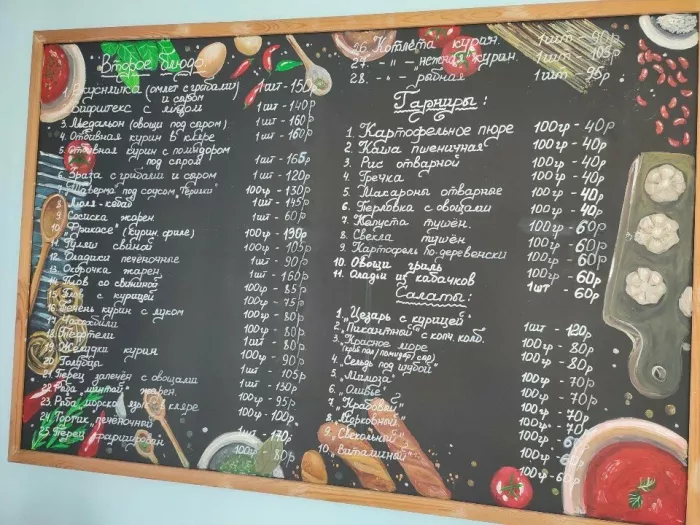 Второе блюдо:
1. Вкуснлика (омлет с грибами и сыром 1шт - 150р
2. Бифштекс с яйцом 1шт - 140р
3. Медальон (овощи под сыром) 1шт - 160р
4. Отбивная курин в кляре 1шт - 160р
5. Отбивная курин с помидором под сыром 1шт - 165р
6. Зраза с грибами и сыром 1шт - 120р
7. Шаверма под соусом 100гр - 130р
8. Люля-кебаб 1шт - 145р
9. Сосиска жарен 1шт - 60р
10. "Фрикасе" (курин филе) 100гр - 190р
11. Гуляш свиной 100гр - 105р
12. Оладики печёночные 1шт - 90р
13. Окорочка жарен. 1шт - 160р
14. Плов со свининой 100гр - 85р
15. Плов с курицей 100гр - 75р
16. Печень курин с луком 100гр - 80р
17. 100гр - 80р
18. Тефтели 100гр - 80р
19. Желудки курин 100гр - 80р
20. Голубцы 100гр - 90р
21. Перец запечён с овощами 1шт - 105р
22. Рыба минтай жарен. 1шт - 130р
23. Рыба морской язык в кляре 100гр - 95р
24. Тортик "печёночный" 100гр - 100р
25. Перец фарширован 1шт - 170р
100гр - 80р
26. Котлета курин. 1шт - 90р
27. - " - нежная курин. 1шт - 105р
28. - " - рыбная 1шт - 95р
Гарниры:
1. Картофельное пюре 100гр - 40р
2. Каша пшеничная 100гр - 40р
3. Рис отварной 100гр - 40р
4. Гречка 100гр - 40р
5. Макароны отварные 100гр - 40р
6. Перловка с овощами 100гр - 40р
7. Капуста тушён. 100гр - 60р
8. Свекла тушён 100гр - 60р
9. Картофель по-деревенски 100гр - 60р
10. Овощи гриль 100гр - 60р
11. Оладьи из кабачков 1шт - 60р
Салаты:
1. "Цезарь с курицей" 1шт - 120р
2. "Пикантный" с копч. колб. 100гр - 80р
3. "Красное море" (краб пал/помидор/сыр) 100гр - 80р
4. "Сельдь под шубой" 100гр - 70р
5. "Мимоза" 100гр - 70р
6. "Оливье" 100гр - 70р
7. "Крабовый" 100гр - 70р
8. "Морковный" 100гр - 60р
9. "Свекольный" 100гр - 60р
10. "Витаминный" 100гр - 60р